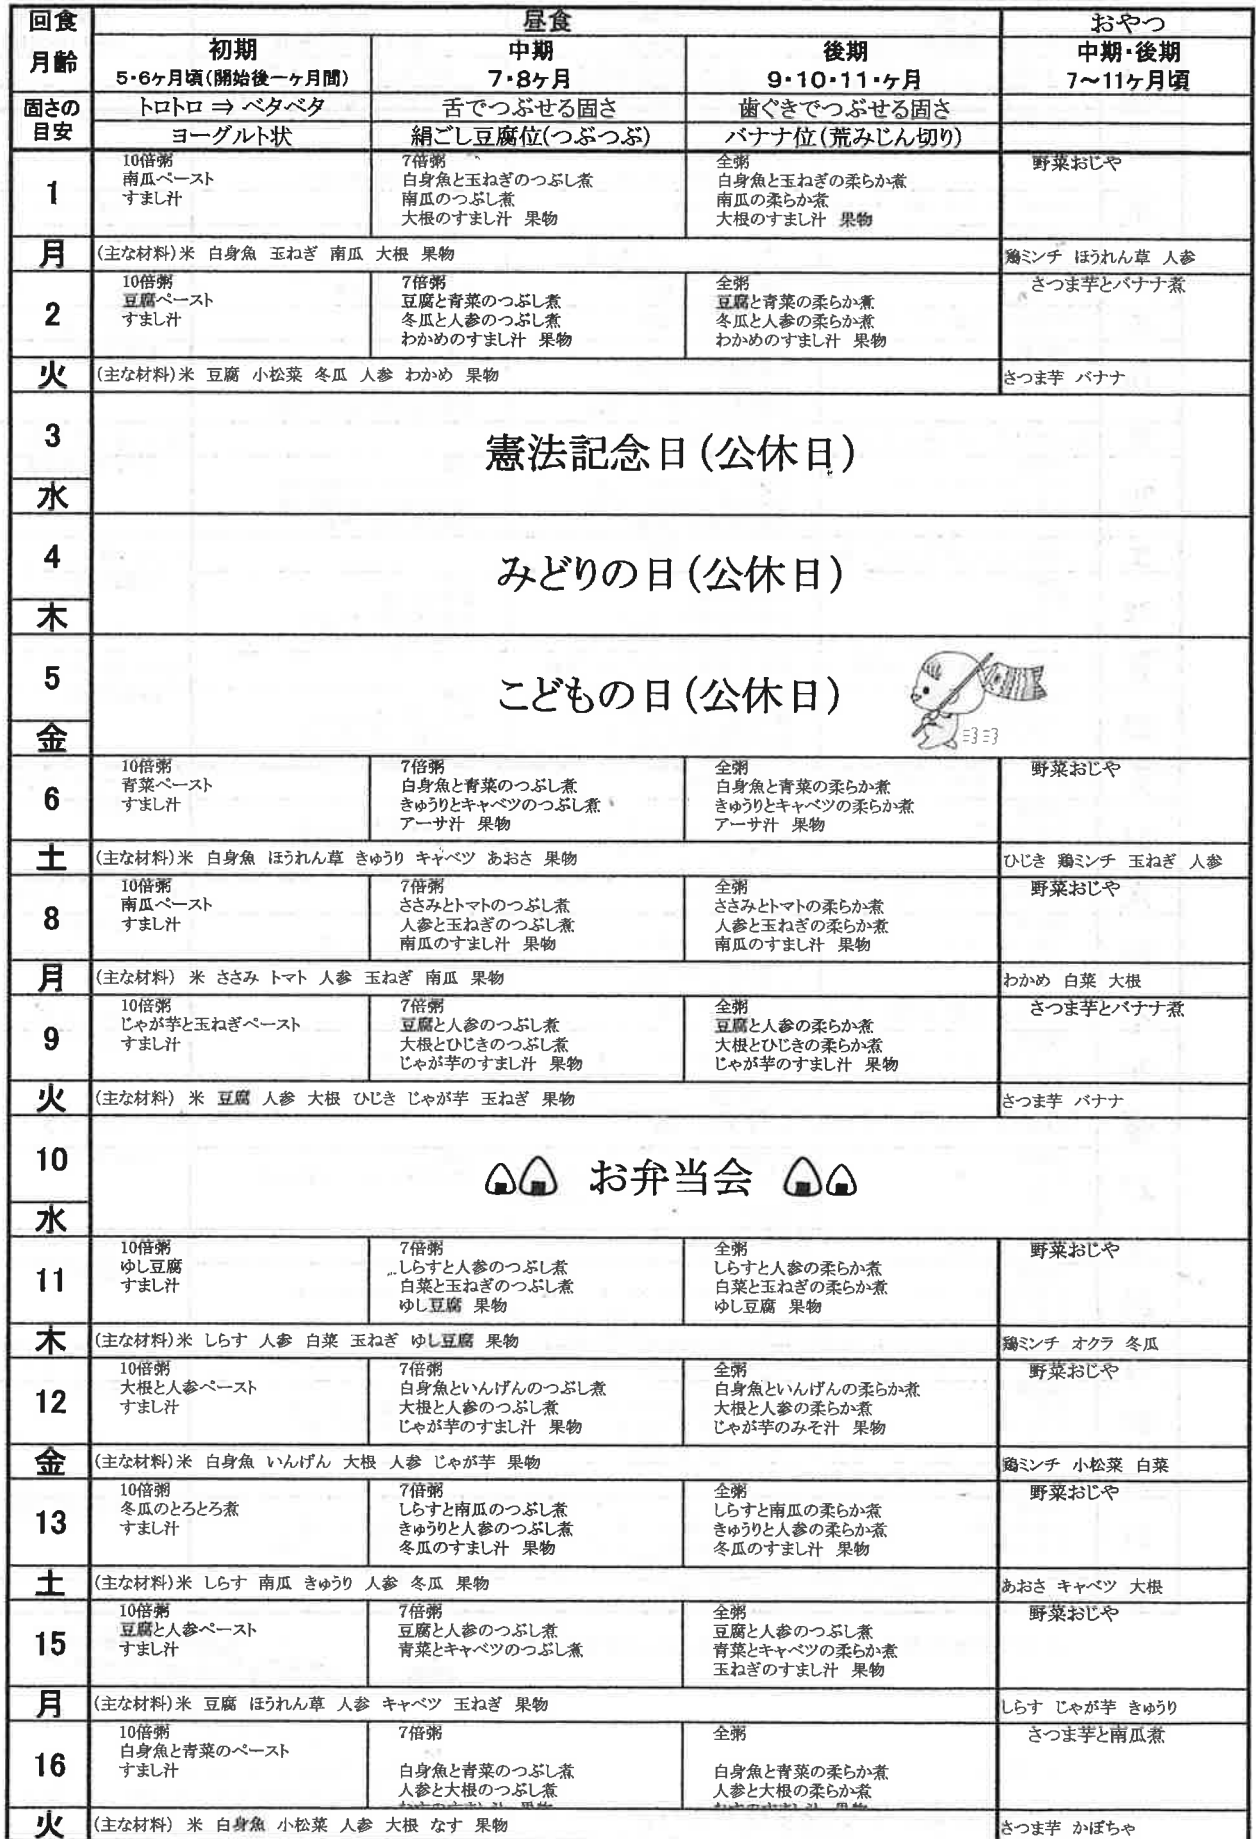 回食 昼食 おやつ
月齢 初期 中期 後期 中期・後期
5・6ヶ月頃(開始後一ヶ月間) 7・8ヶ月 9・10・11・ヶ月 7～11ヶ月頃
固さの トロトロ ⇒ ベタベタ 舌でつぶせる固さ 歯ぐきでつぶせる固さ
目安 ヨーグルト状 絹ごし豆腐位(つぶつぶ) バナナ位(荒みじん切り)
1
10倍粥
南瓜ペースト
すまし汁
7倍粥
白身魚と玉ねぎのつぶし煮
南瓜のつぶし煮
大根のすまし汁 果物
全粥
白身魚と玉ねぎの柔らか煮
南瓜の柔らか煮
大根のすまし汁 果物
野菜おじや
月
(主な材料)米 白身魚 玉ねぎ 南瓜 大根 果物
鶏ミンチ ほうれん草 人参
2
10倍粥
豆腐ペースト
すまし汁
7倍粥
豆腐と青菜のつぶし煮
冬瓜と人参のつぶし煮
わかめのすまし汁 果物
全粥
豆腐と青菜の柔らか煮
冬瓜と人参の柔らか煮
わかめのすまし汁 果物
さつま芋とバナナ煮
火
(主な材料)米 豆腐 小松菜 冬瓜 人参 わかめ 果物
さつま芋 バナナ
3
水
憲法記念日(公休日)
4
木
みどりの日(公休日)
5
金
こどもの日(公休日)
6
10倍粥
青菜ペースト
すまし汁
7倍粥
白身魚と青菜のつぶし煮
きゅうりとキャベツのつぶし煮
アーサ汁 果物
全粥
白身魚と青菜の柔らか煮
きゅうりとキャベツの柔らか煮
アーサ汁 果物
野菜おじや
土
(主な材料)米 白身魚 ほうれん草 きゅうり キャベツ あおさ 果物
ひじき 鶏ミンチ 玉ねぎ 人参
8
10倍粥
南瓜ペースト
すまし汁
7倍粥
ささみとトマトのつぶし煮
人参と玉ねぎのつぶし煮
南瓜のすまし汁 果物
全粥
ささみとトマトの柔らか煮
人参と玉ねぎの柔らか煮
南瓜のすまし汁 果物
野菜おじや
月
(主な材料) 米 ささみ トマト 人参 玉ねぎ 南瓜 果物
わかめ 白菜 大根
9
10倍粥
じゃが芋と玉ねぎペースト
すまし汁
7倍粥
豆腐と人参のつぶし煮
大根とひじきのつぶし煮
じゃが芋のすまし汁 果物
全粥
豆腐と人参の柔らか煮
大根とひじきの柔らか煮
じゃが芋のすまし汁 果物
さつま芋とバナナ煮
火
(主な材料) 米 豆腐 人参 大根 ひじき じゃが芋 玉ねぎ 果物
さつま芋 バナナ
10
水
お弁当会
11
10倍粥
ゆし豆腐
すまし汁
7倍粥
しらすと人参のつぶし煮
白菜と玉ねぎのつぶし煮
ゆし豆腐 果物
全粥
しらすと人参の柔らか煮
白菜と玉ねぎの柔らか煮
ゆし豆腐 果物
野菜おじや
木
(主な材料)米 しらす 人参 白菜 玉ねぎ ゆし豆腐 果物
鶏ミンチ オクラ 冬瓜
12
10倍粥
大根と人参ペースト
すまし汁
7倍粥
白身魚といんげんのつぶし煮
大根と人参のつぶし煮
じゃが芋のすまし汁 果物
全粥
白身魚といんげんの柔らか煮
大根と人参の柔らか煮
じゃが芋のみそ汁 果物
野菜おじや
金
(主な材料)米 白身魚 いんげん 大根 人参 じゃが芋 果物
鶏ミンチ 小松菜 白菜
13
10倍粥
冬瓜のとろとろ煮
すまし汁
7倍粥
しらすと南瓜のつぶし煮
きゅうりと人参のつぶし煮
冬瓜のすまし汁 果物
全粥
しらすと南瓜の柔らか煮
きゅうりと人参の柔らか煮
冬瓜のすまし汁 果物
野菜おじや
土
(主な材料)米 しらす 南瓜 きゅうり 人参 冬瓜 果物
あおさ キャベツ 大根
15
10倍粥
豆腐と人参ペースト
すまし汁
7倍粥
豆腐と人参のつぶし煮
青菜とキャベツのつぶし煮
全粥
豆腐と人参のつぶし煮
青菜とキャベツの柔らか煮
玉ねぎのすまし汁 果物
野菜おじや
月
(主な材料)米 豆腐 ほうれん草 人参 キャベツ 玉ねぎ 果物
しらす じゃが芋 きゅうり
16
10倍粥
白身魚と青菜のペースト
すまし汁
7倍粥
白身魚と青菜のつぶし煮
人参と大根のつぶし煮
全粥
白身魚と青菜の柔らか煮
人参と大根の柔らか煮
さつま芋と南瓜煮
火
(主な材料) 米 白身魚 小松菜 人参 大根 なす 果物
さつま芋 かぼちゃ